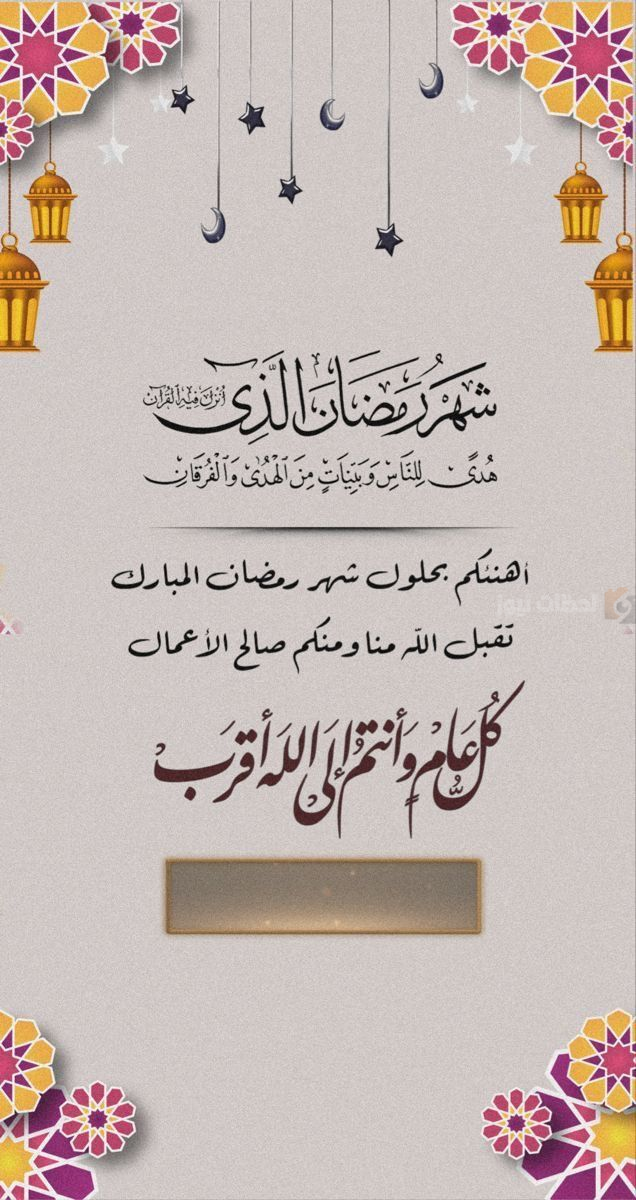 شَهْرُ رَمَضَانَ الَّذِي أُنْزِلَ فِيهِ الْقُرْآنُ
هُدًى لِلنَّاسِ وَبَيِّنَاتٍ مِنَ الْهُدَىٰ وَالْفُرْقَانِ
أهنئكم بحلول شهر رمضان المبارك
لحظات نيوز
تقبل الله منا ومنكم صالح الأعمال
كُلُّ عَامٍ وَأَنتُمْ إِلَى اللهِ أَقْرَبَ